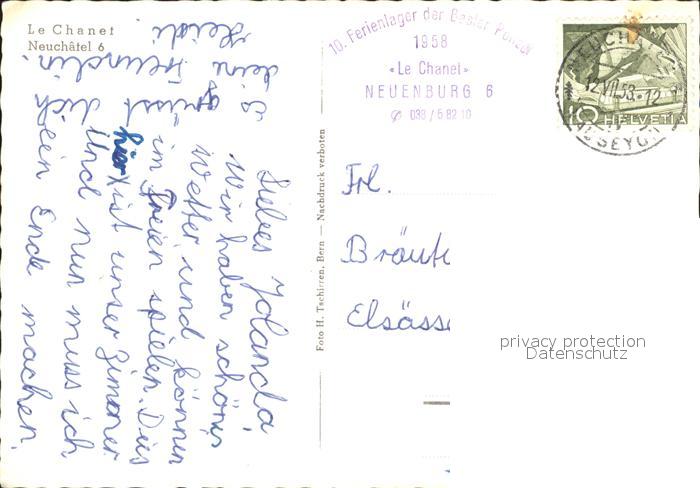 Le Chanet
Neuchâtel 6
10. Ferienlager der Basler
1958
«Le Chanet»
NEUENBURG 6
038 / 5 82 10
NEUCHATEL
12.VII.58.-12
10 HELVETIA
Frl.
Bräute
Elsässe
privacy protection
Datenschutz
Foto H. Tschirren, Bern — Nachdruck verboten
Liebes Jolanda!
Wir haben schönis
Wetter und können
im Freien spielen. Dies
hier ist unser Zimmer
Und nun muss ich
ein Ende machen.
Es grüsst dich
deine Freundin.
Heidi